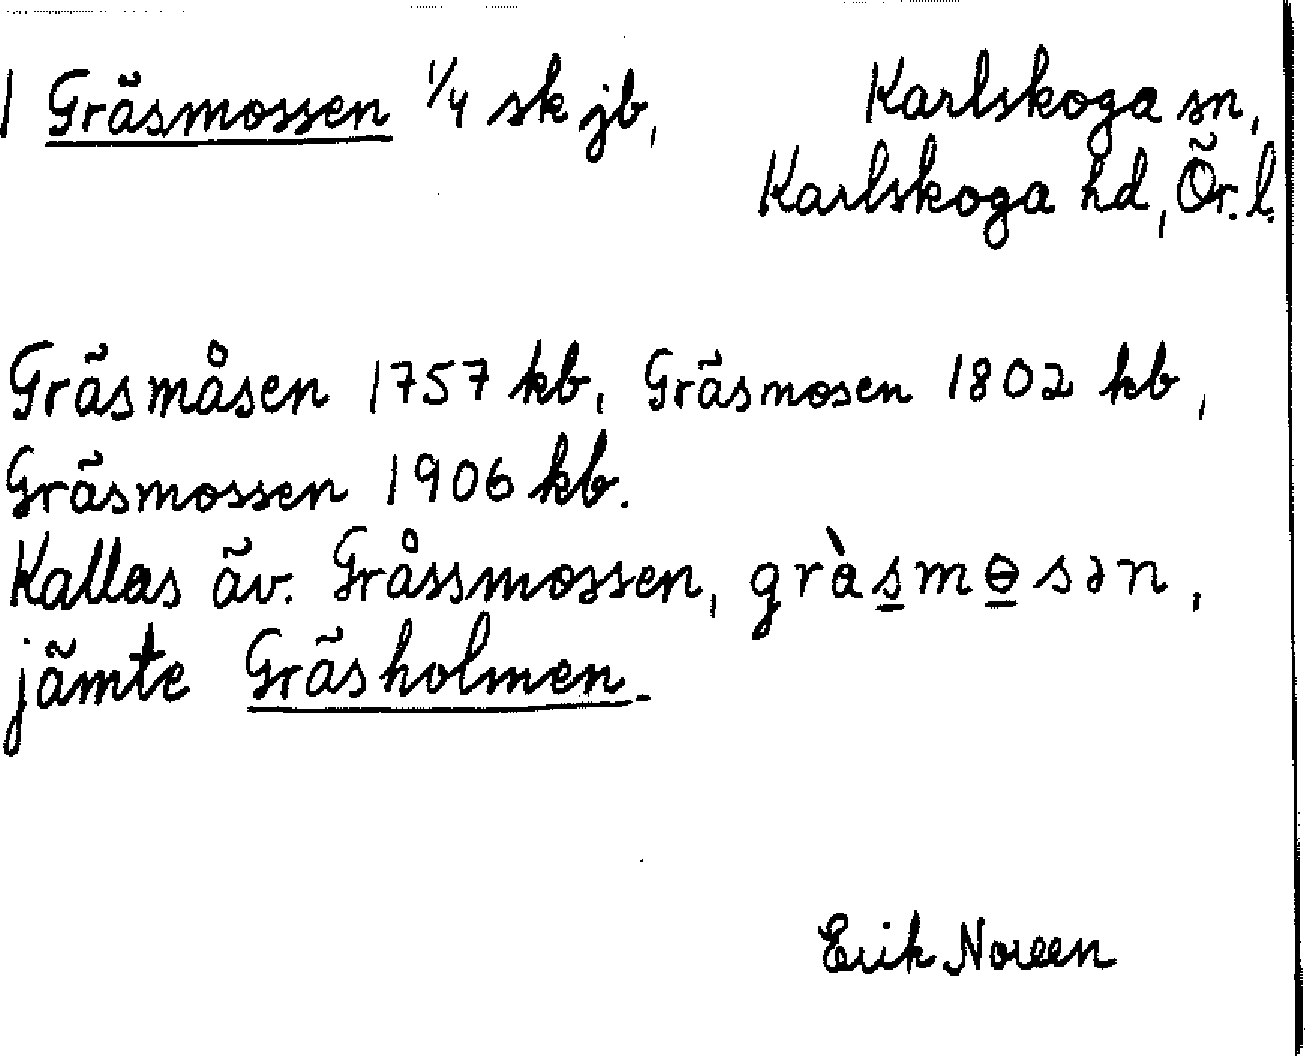 1 Gräsmossen 1/4 sk jb, Karlskoga sn,
Karlskoga hd, Ör. l.
Gräsmåsen 1757 kb, Gräsmosen 1802 kb,
Gräsmossen 1906 kb.
Kallas äv. Gråssmossen, gràs̲mɵ̲sən,
jämte Gräsholmen.
Erik Noreen